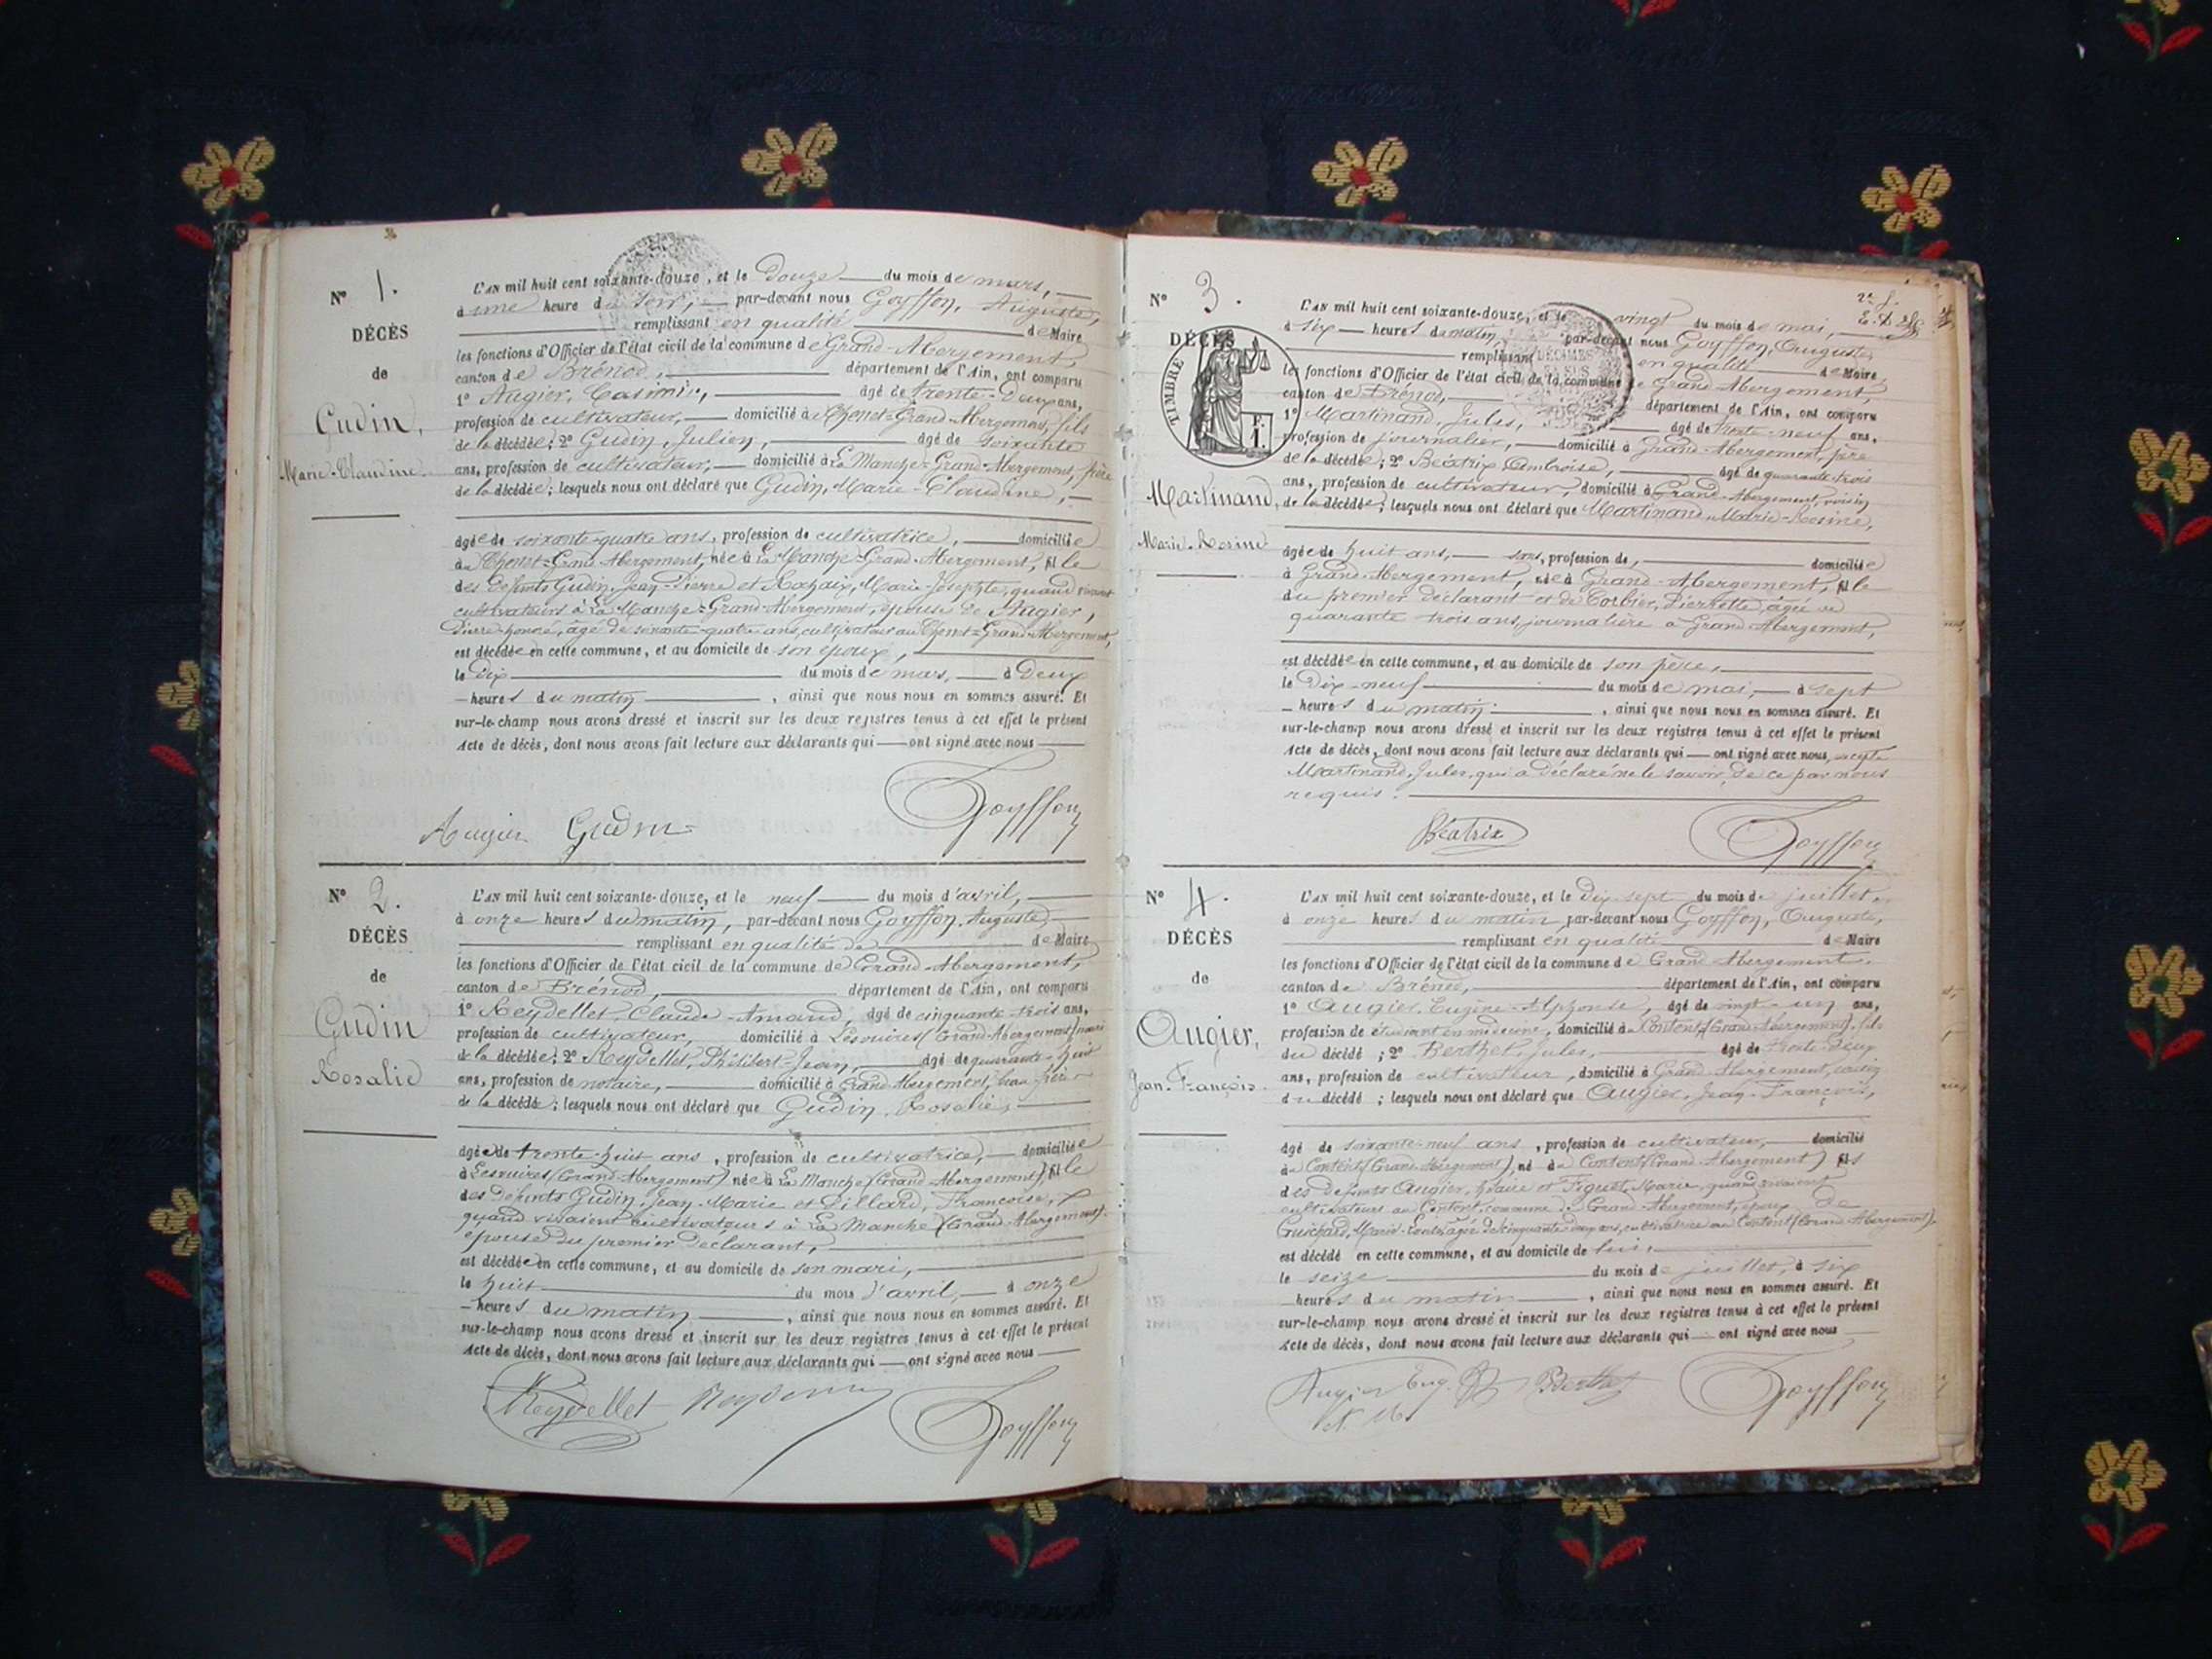 N° 1.
DÉCÈS
de
Gudin,
Marie-Claudine.
L'AN mil huit cent soixante-douze, et le Douze du mois de mars,
à une heure du soir, par-devant nous Goyffon, Auguste,
remplissant en qualité de Maire
les fonctions d'Officier de l'état civil de la commune de Grand-Abergement,
canton de Brénod, département de l'Ain, ont comparu
1° Augier, Casimir, âgé de trente-deux ans,
profession de cultivateur, domicilié à Grand-Abergement, fils
de la décédée; 2° Gudin, Julien, âgé de soixante
ans, profession de cultivateur, domicilié à La Manche-Grand-Abergement, frère
de la décédée; lesquels nous ont déclaré que Gudin, Marie-Claudine,
âgée de soixante-quatre ans, profession de cultivatrice, domiciliée
Grand-Abergement, née à La Manche-Grand-Abergement, fille
des défunts Gudin, Jean-Pierre et Marie-Josephte, quand vivaient
cultivateurs à La Manche-Grand-Abergement, épouse de Augier,
Pierre-honoré, âgé de soixante-quatre ans, cultivateur au Grand-Abergement,
est décédée en cette commune, et au domicile de son époux,
le Dix du mois de mars, à Deux
heures du matin, ainsi que nous nous en sommes assuré. Et
sur-le-champ nous avons dressé et inscrit sur les deux registres tenus à cet effet le présent
Acte de décès, dont nous avons fait lecture aux déclarants qui ont signé avec nous
Augier Gudin Goyffon
N° 2.
DÉCÈS
de
Gudin
Rosalie
L'AN mil huit cent soixante-douze, et le neuf du mois d'avril,
à onze heures du matin, par-devant nous Goyffon, Auguste,
remplissant en qualité de de Maire
les fonctions d'Officier de l'état civil de la commune de Grand-Abergement,
canton de Brénod, département de l'Ain, ont comparu
1° Reydellet, Claude-Amand, âgé de cinquante-trois ans,
profession de cultivateur, domicilié à Lesvuires (Grand-Abergement) mari
de la décédée; 2° Reydellet, Philibert-Jean, âgé de quarante-huit
ans, profession de notaire, domicilié à Grand-Abergement, beau-frère
de la décédée; lesquels nous ont déclaré que Gudin, Rosalie,
âgée de trente-huit ans, profession de cultivatrice, domiciliée
à Lesvuires (Grand-Abergement) née à La Manche (Grand-Abergement), fille
des défunts Gudin, Jean-Marie et Pillard, Françoise,
quand vivaient cultivateurs à La Manche (Grand-Abergement).
épouse du premier déclarant,
est décédée en cette commune, et au domicile de son mari,
le huit du mois d'avril, à onze
heures du matin, ainsi que nous nous en sommes assuré. Et
sur-le-champ nous avons dressé et inscrit sur les deux registres tenus à cet effet le présent
Acte de décès, dont nous avons fait lecture aux déclarants qui ont signé avec nous
Reydellet Goyffon
N° 3.
2e f.
DÉCÈS
TIMBRE
F.
1.
Martinand,
Marie-Rosine
L'AN mil huit cent soixante-douze, et le vingt du mois de mai,
à six heures du matin par-devant nous Goyffon, Auguste,
remplissant en qualité de Maire
les fonctions d'Officier de l'état civil de la commune de Grand-Abergement,
canton de Brénod, département de l'Ain, ont comparu
1° Martinand, Jules, âgé de trente-neuf ans,
profession de journalier, domicilié à Grand-Abergement, père
de la décédée; 2° Béatrix Ambroise, âgé de quarante-trois
ans, profession de cultivateur, domicilié à Grand-Abergement, voisin
de la décédée; lesquels nous ont déclaré que Martinand, Marie-Rosine,
âgée de huit ans, sans, profession de, domiciliée
à Grand-Abergement, née à Grand-Abergement, fille
du premier déclarant et de Corbier, Pierrette, âgée de
quarante trois ans, journalière à Grand-Abergement,
est décédée en cette commune, et au domicile de son père,
le Dix-neuf du mois de mai, à sept
heures du matin, ainsi que nous nous en sommes assuré. Et
sur-le-champ nous avons dressé et inscrit sur les deux registres tenus à cet effet le présent
Acte de décès, dont nous avons fait lecture aux déclarants qui ont signé avec nous, excepté
Martinand, Jules, qui a déclaré ne le savoir, de ce par nous
requis.
Béatrix Goyffon
N° 4.
DÉCÈS
de
Augier,
Jean-François.
L'AN mil huit cent soixante-douze, et le Dix-sept du mois de juillet,
à onze heures du matin, par-devant nous Goyffon, Auguste,
remplissant en qualité de Maire
les fonctions d'Officier de l'état civil de la commune de Grand-Abergement,
canton de Brénod, département de l'Ain, ont comparu
1° Augier, Eugène-Alphonse, âgé de vingt-un ans,
profession de étudiant en médecine, domicilié à Content (Grand-Abergement), fils
du décédé; 2° Berthet, Jules, âgé de trente-deux
ans, profession de cultivateur, domicilié à Grand-Abergement, voisin
du décédé; lesquels nous ont déclaré que Augier, Jean-François,
âgé de soixante-neuf ans, profession de cultivateur, domicilié
à Content (Grand-Abergement), né à Content (Grand-Abergement) fils
des défunts Augier, et Marie, quand vivaient
cultivateurs au Content, commune de Grand-Abergement, époux de
Guichard, Marie- âgée de cinquante-deux ans, cultivatrice au Content (Grand-Abergement).
est décédé en cette commune, et au domicile de lui,
le seize du mois de juillet, à six
heures du matin, ainsi que nous nous en sommes assuré. Et
sur-le-champ nous avons dressé et inscrit sur les deux registres tenus à cet effet le présent
Acte de décès, dont nous avons fait lecture aux déclarants qui ont signé avec nous
Augier Eug. Berthet Goyffon